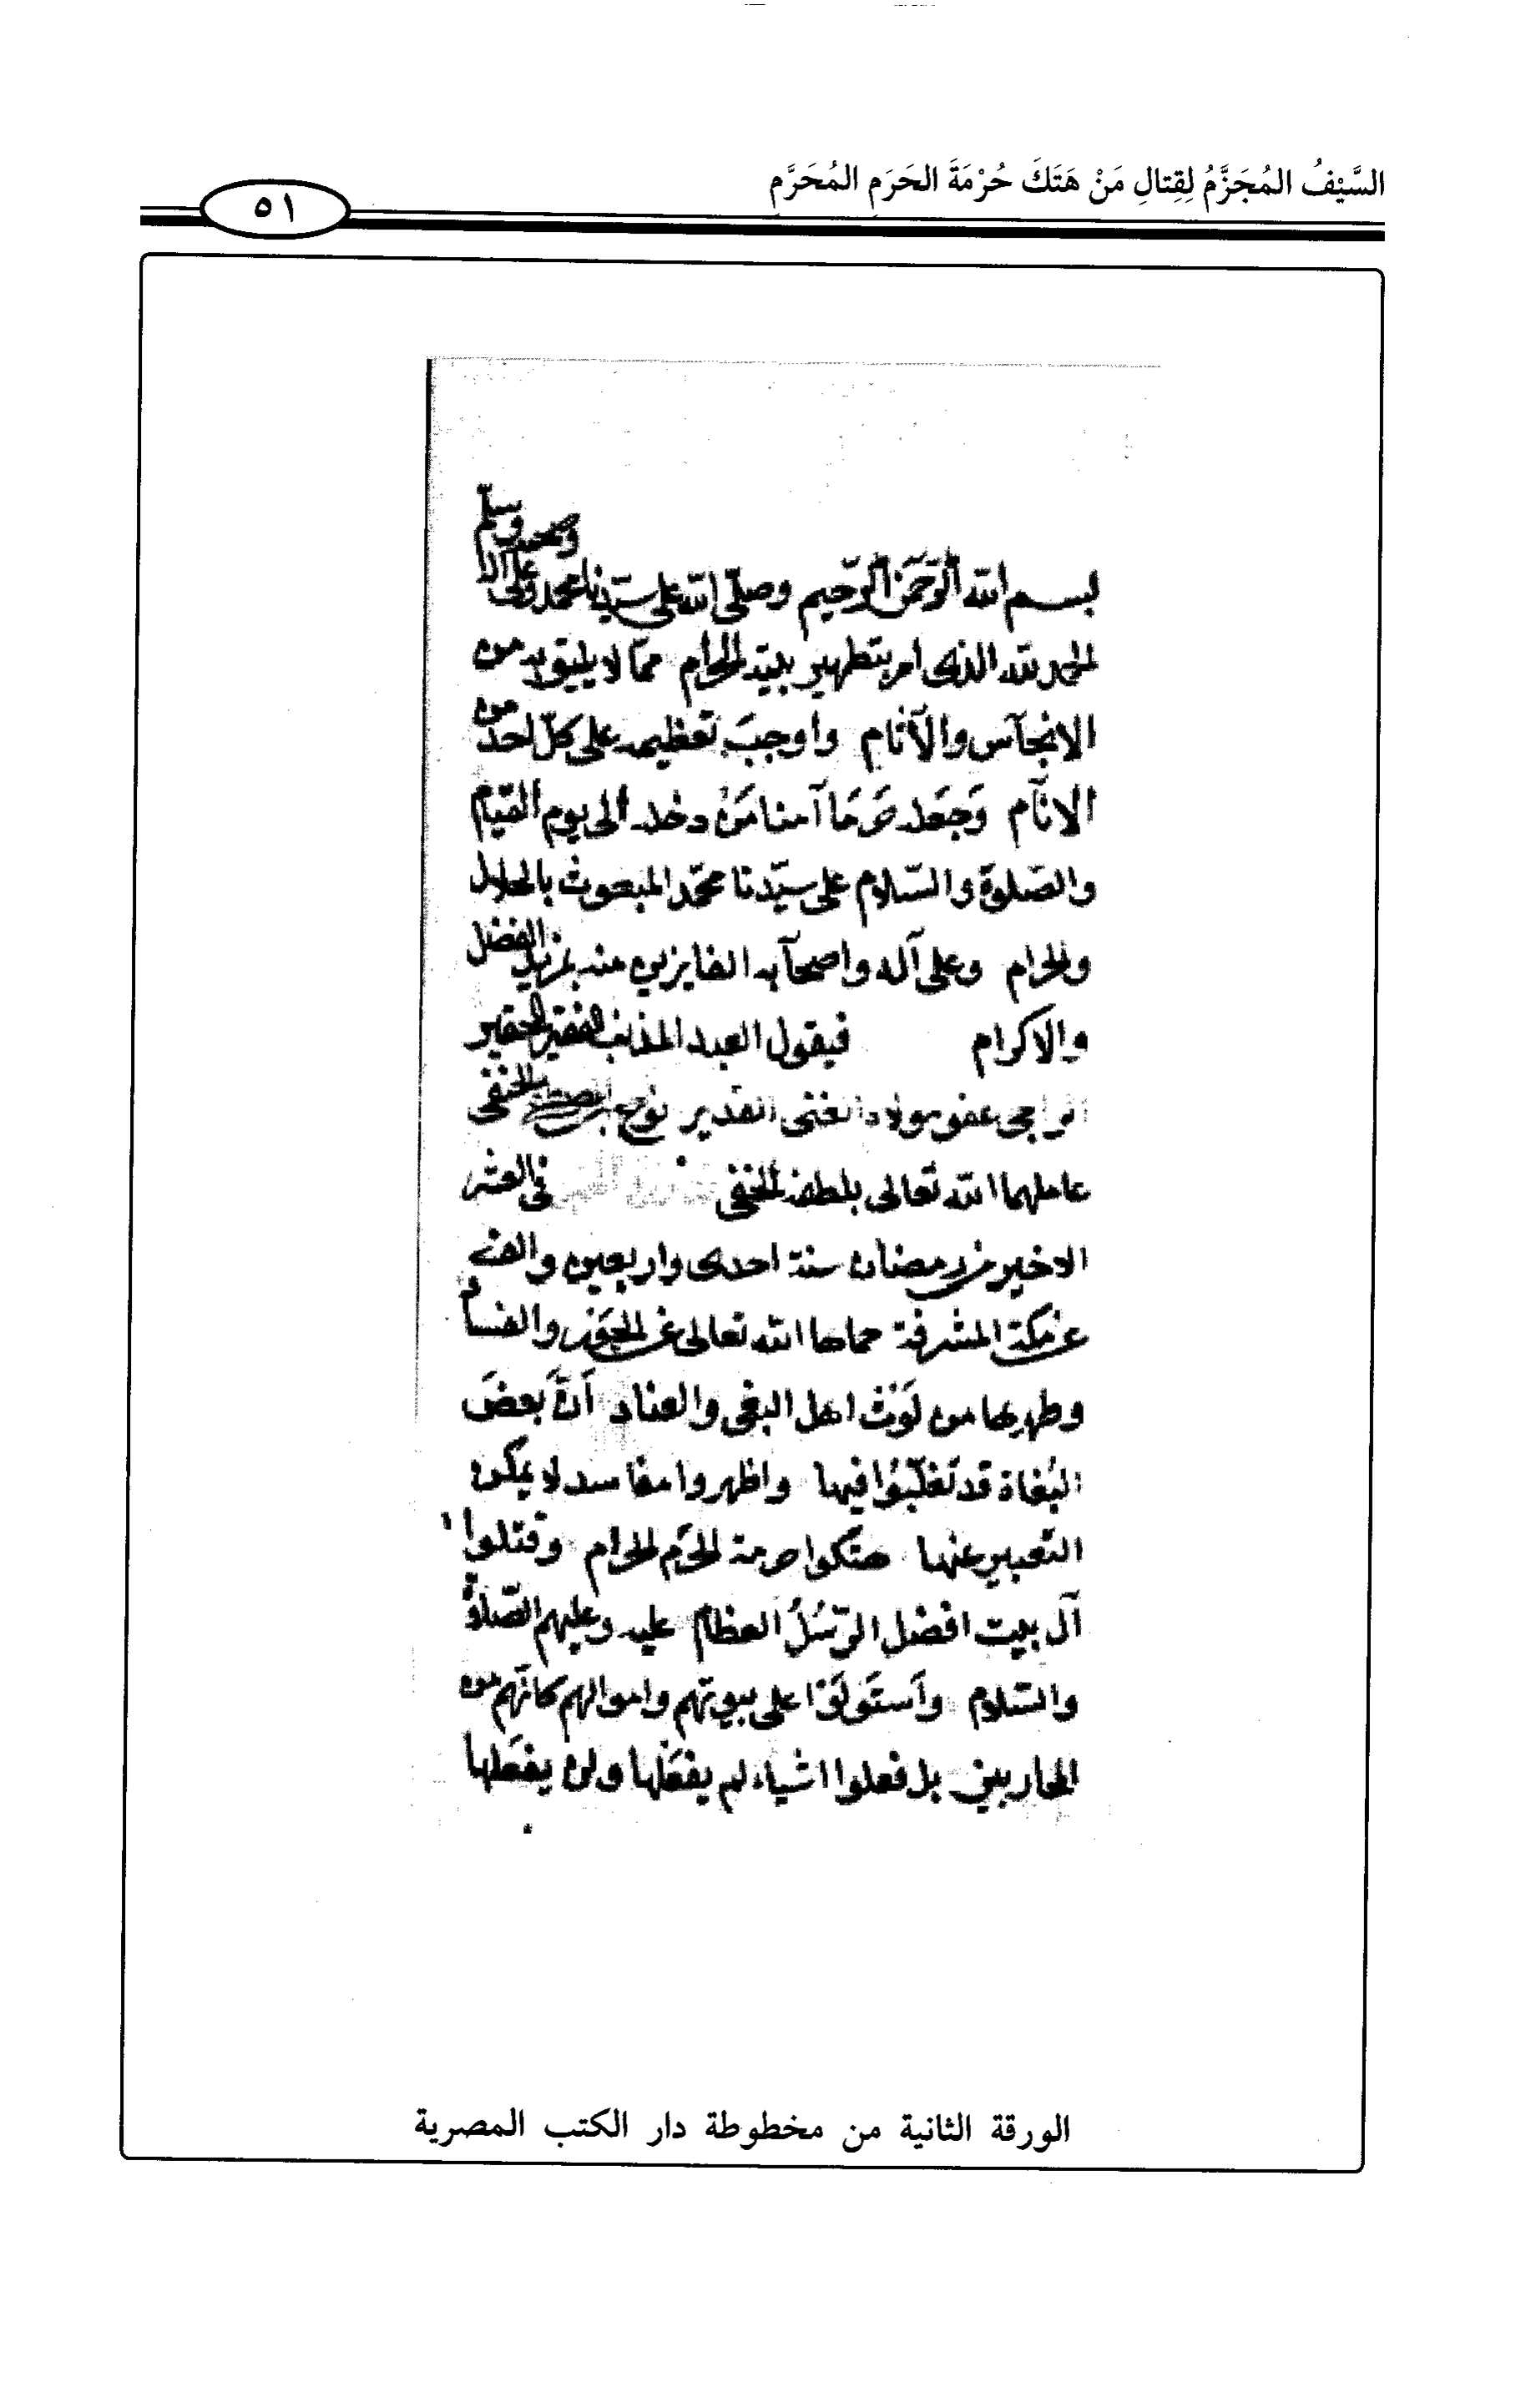 السَّيْفُ المُجَزَّمُ لِقِتالِ مَنْ هَتَكَ حُرْمَةَ الحَرَمِ المُحَرَّمِ
٥١
بسم الله الرَّحمَن الرّحيم وصلّى الله على سيّدنا محمد وعلى آله وصحبه وسلّم
الحمد لله الذى امر بتطهير بيته الحرام ممّا لا يليق به من
الانجآس والآثام واوجبَ تعظيمه على كلّ احد من
الانآم وَجعَله حَرَمَا آمنا مَنْ دخله الى يوم القيام
والصّلوة والسّلام على سيّدنا محمّد المبعوث بالحلال
والحرام وعلى آله واصحآبه الفايزين منه بمزيد الفضل
والاكرام فيقول العبد المذنب الفقير الحقير
الراجى عفو مولاه الغنى القدير نوح بن مصطفى الحنفى
عاملهما الله تعالى بلطفه الخفى فى العشر
الاخير من رمضان سنة احدى واربعين والف
عن مكة المشرفة حماها الله تعالى عن والفساد
وطهرها من لَوَث اهل البغى والعناد اَنَّ بعضَ
البُغاة قد تغلّبُوا فيها واظهروا مفاسد لا يمكن
التعبير عنها هتكوا حرمة الحَرَم الحرام وقتلوا
آل بيت افضل الرّسُلُ العظام عليه وعليهم الصّلوة
والسّلام واَستَولَوْا على بيوتهم واموالهم كانّهم من
الحاربين بل فعلوا اشياء لم يفعَلها ولن يفعَلها
الورقة الثانية من مخطوطة دار الكتب المصرية